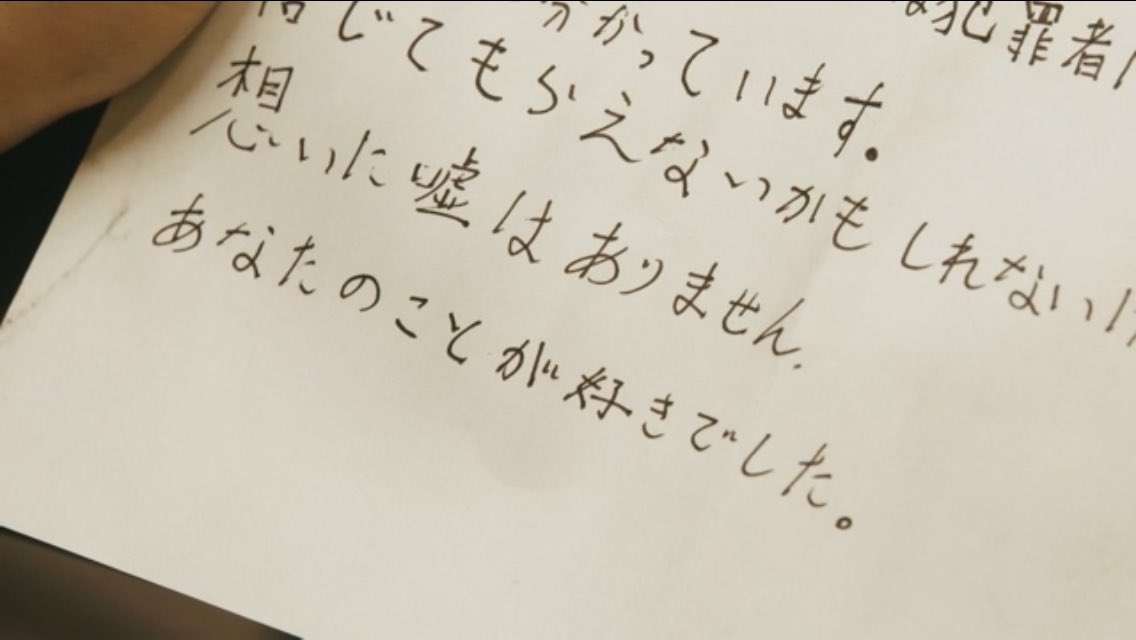 な犯罪者
分かっています。
信じてもらえないかもしれない
想いに嘘はありません。
あなたのことが好きでした。